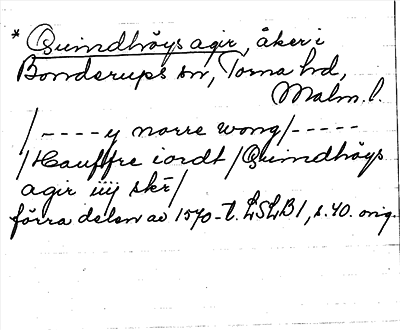 * Quindhöys agir, åker i
Bonderups sn, Torna hd,
Malm. l.
/ - - - - y norre wong / - - - - -
/ Hauffre iordt / Quindhöys
agir iiij skr /
förra delen av 1570-t. LSLB 1, s. 40. orig.